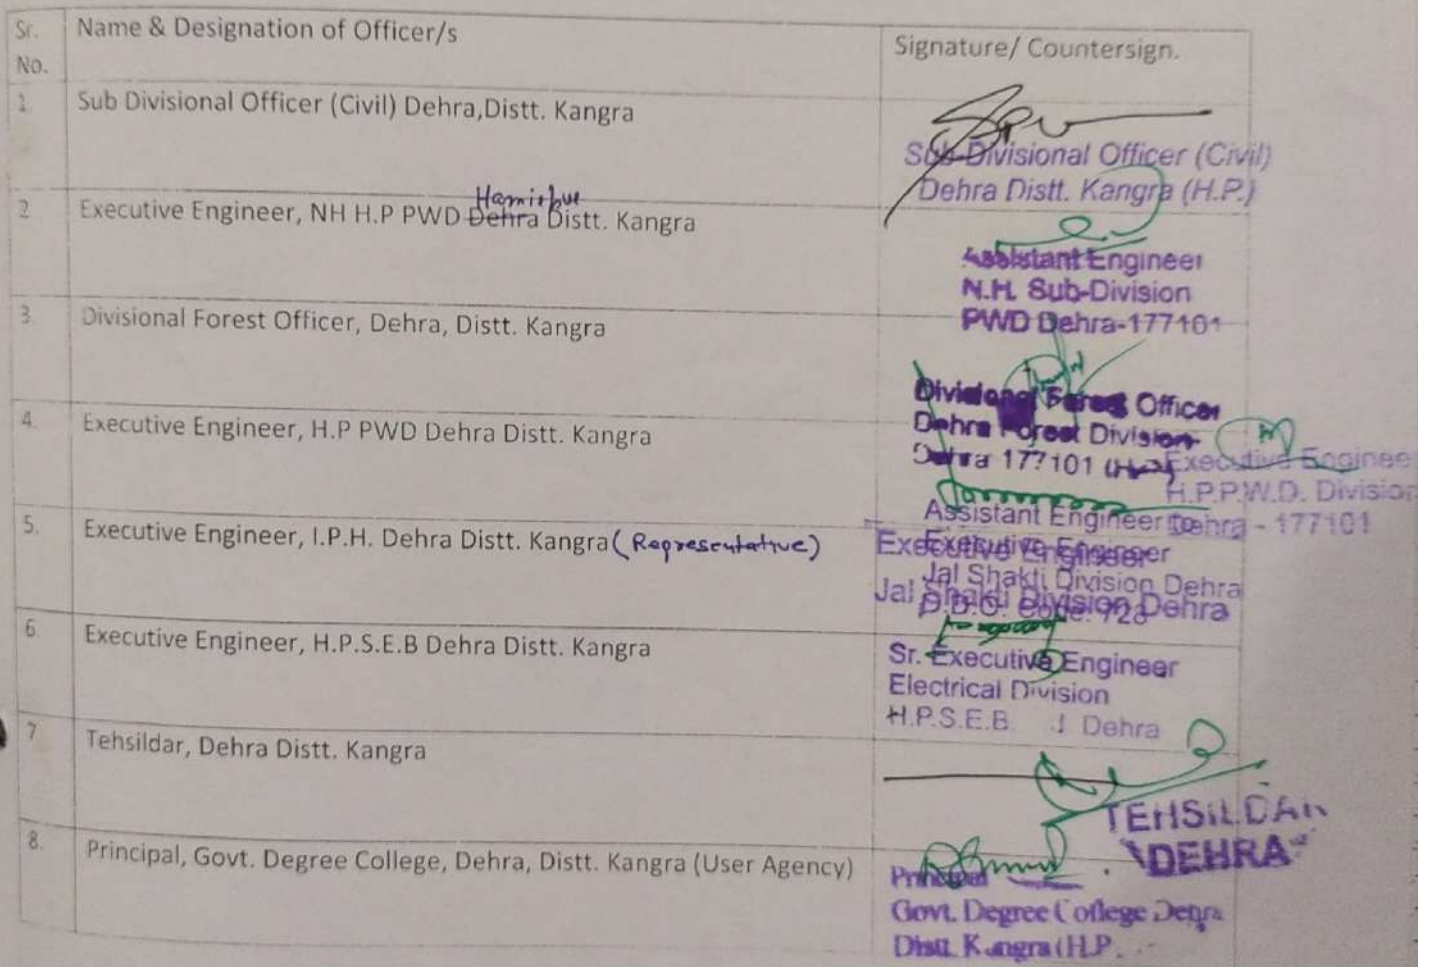 Sr. No.
Name & Designation of Officer/s
Signature/ Countersign.
1.
Sub Divisional Officer (Civil) Dehra,Distt. Kangra
Sub-Divisional Officer (Civil)
Dehra Distt. Kangra (H.P.)
2.
Hamirpur
Executive Engineer, NH H.P PWD Dehra Distt. Kangra
Assistant Engineer
N.H. Sub-Division
PWD Dehra-177101
3.
Divisional Forest Officer, Dehra, Distt. Kangra
Divisional Forest Officer
Dehra Forest Division
Dehra 177101
4.
Executive Engineer, H.P PWD Dehra Distt. Kangra
Executive Enginee
H.P.P.W.D. Division
Dehra - 177101
5.
Executive Engineer, I.P.H. Dehra Distt. Kangra (Representative)
Assistant Engineer
Executive Engineer
Jal Shakti Division Dehra
Executive Engineer
Jal Shakti Division Dehra
6.
Executive Engineer, H.P.S.E.B Dehra Distt. Kangra
Sr. Executive Engineer
Electrical Division
H.P.S.E.B. Dehra
7.
Tehsildar, Dehra Distt. Kangra
TEHSILDAR
DEHRA
8.
Principal, Govt. Degree College, Dehra, Distt. Kangra (User Agency)
Principal
Govt. Degree College Dehra
Distt. Kangra (H.P.